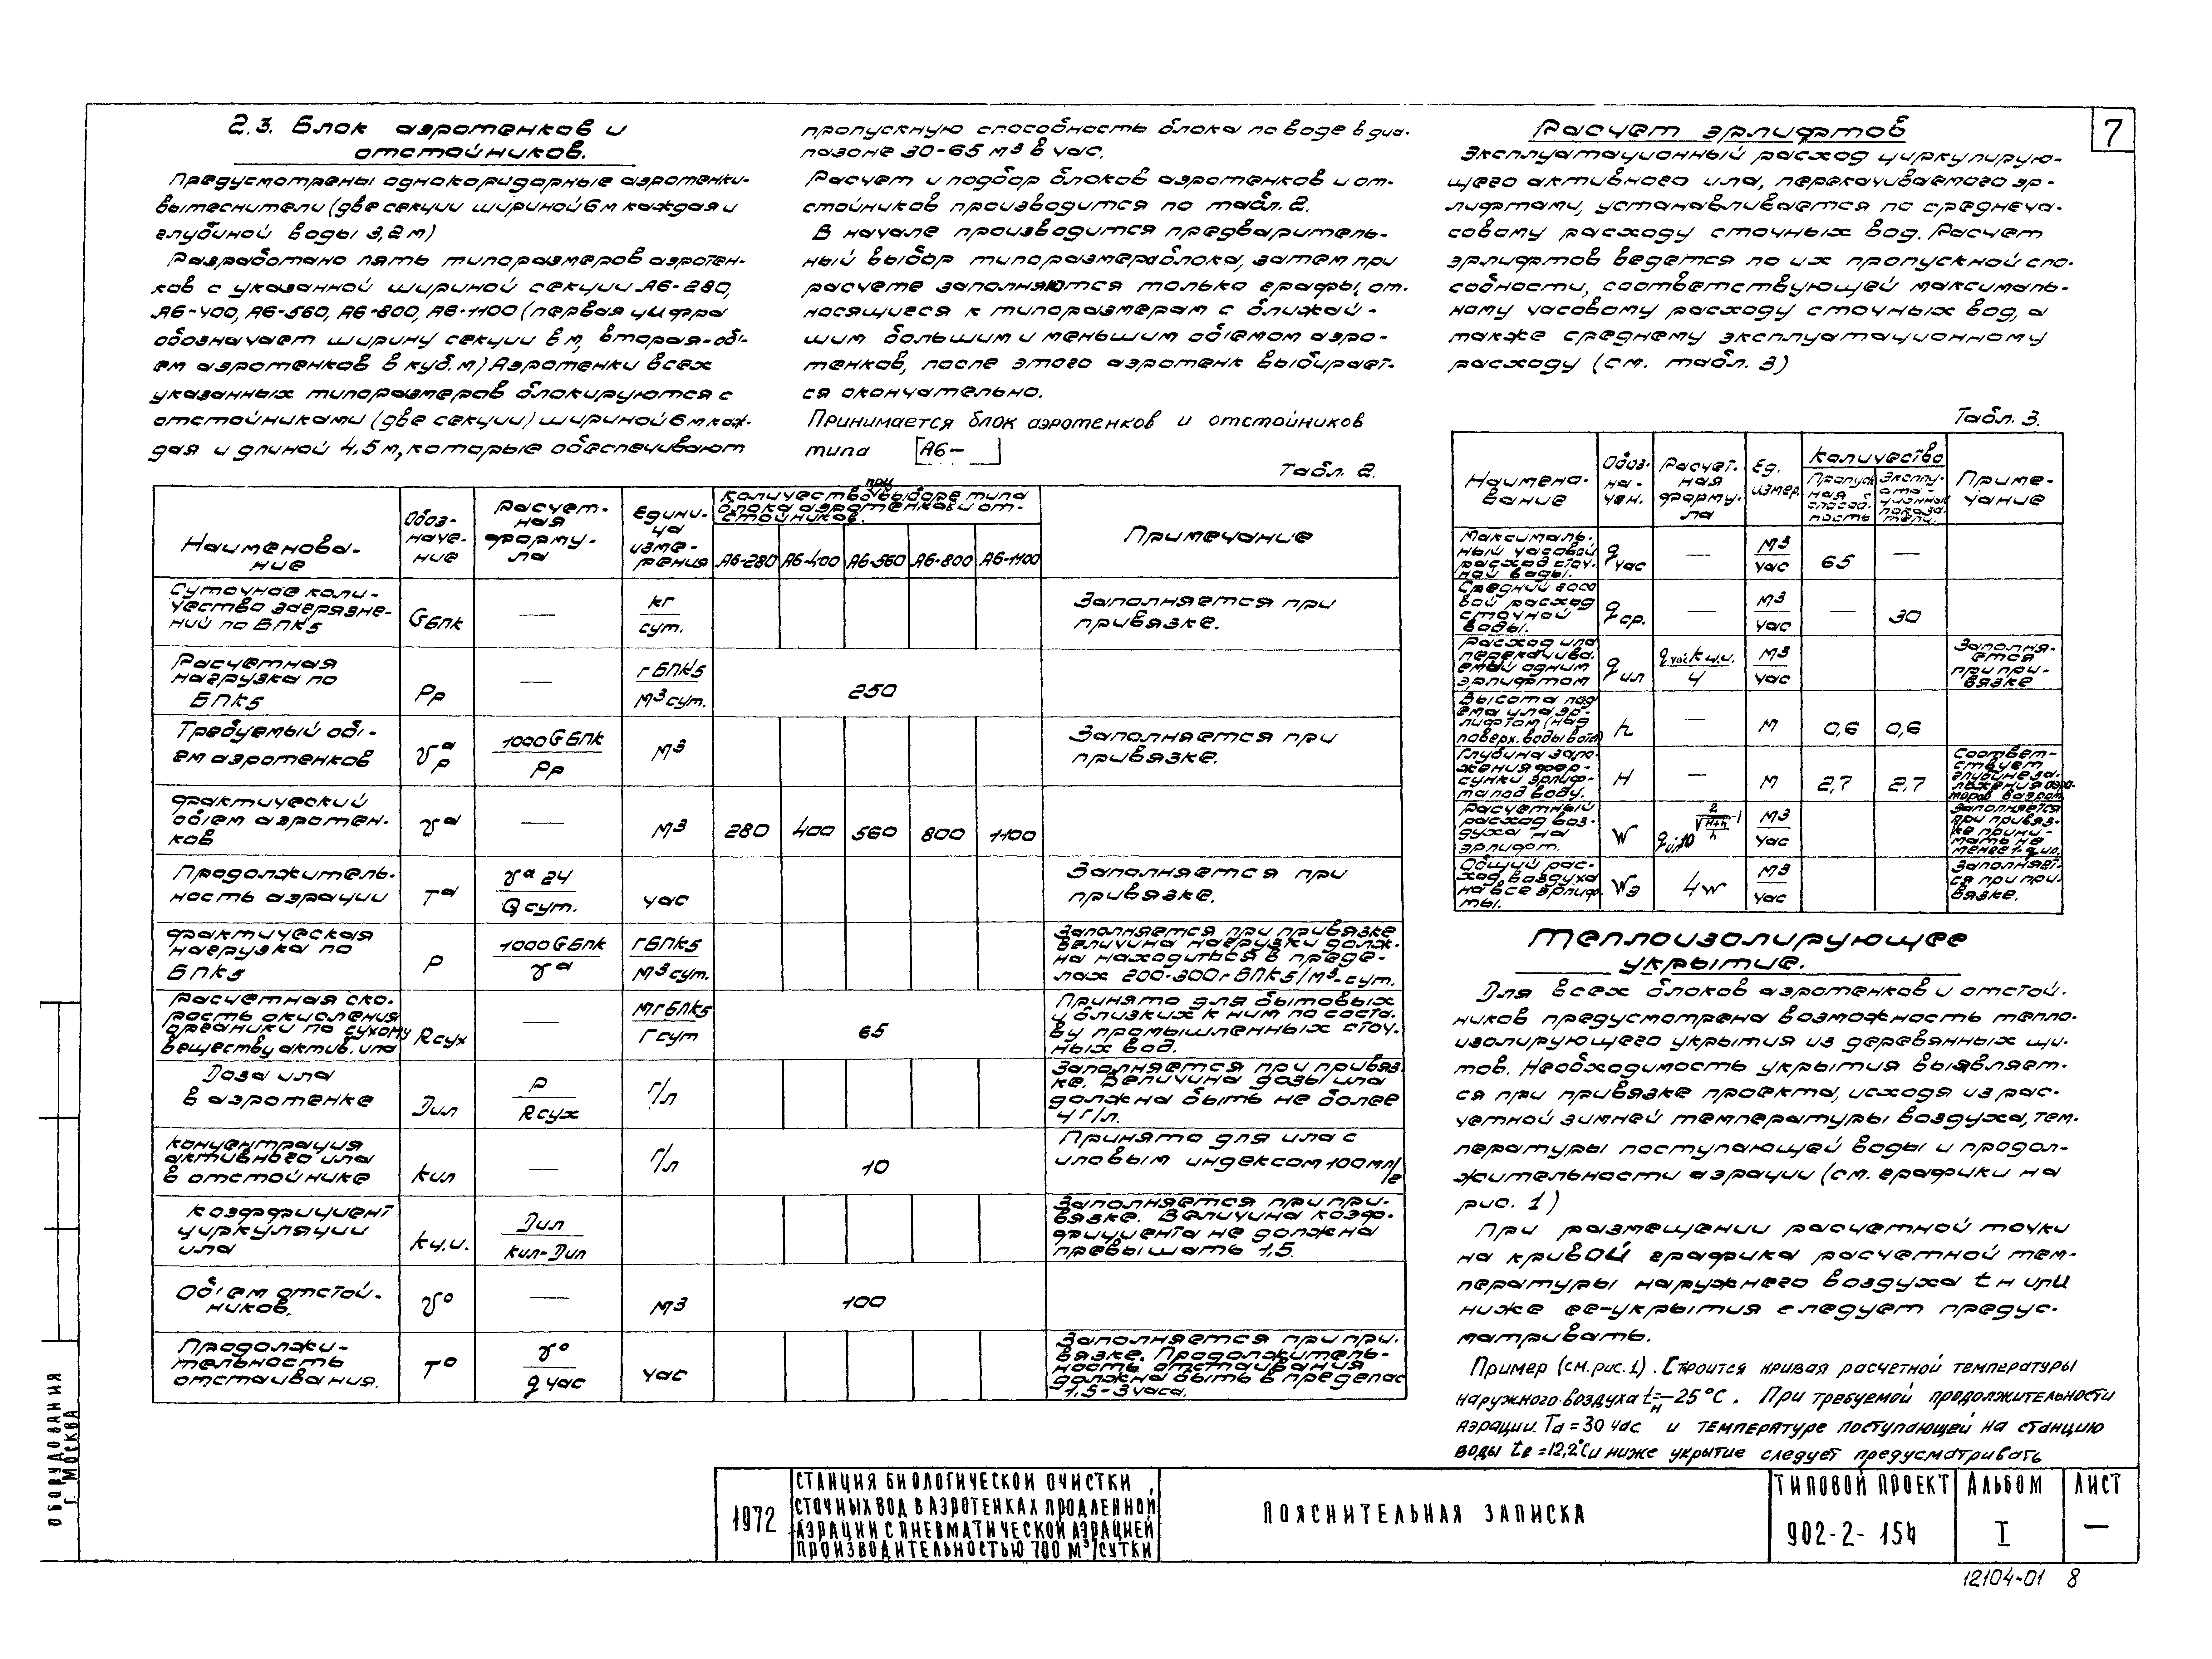 7
2.3. Блок аэротенков и
отстойников.
Предусмотрены однокоридорные аэротенки-
вытеснители (две секции шириной 6 м каждая и
глубиной воды 3,2 м)
Разработано пять типоразмеров аэротен-
ков с указанной шириной секции А6-280,
А6-400, А6-560, А6-800, А6-1100 (первая цифра
обозначает ширину секции в м, вторая-объ-
ем аэротенков в куб.м) Аэротенки всех
указанных типоразмеров блокируются с
отстойниками (две секции) шириной 6 м каж-
дая и длиной 4,5 м, которые обеспечивают
пропускную способность блока по воде в диа-
пазоне 30-65 м3 в час.
Расчет и подбор блоков аэротенков и от-
стойников производится по табл. 2.
В начале производится предваритель-
ный выбор типоразмера блока, затем при
расчете заполняются только графы, от-
носящиеся к типоразмерам с ближай-
шим большим и меньшим объемом аэро-
тенков, после этого аэротенк выбирает-
ся окончательно.
Принимается блок аэротенков и отстойников
типа А6-
Табл. 2.
Наименова-
ние
Обоз-
наче-
ние
Расчет-
ная
форму-
ла
Едини-
ца
изме-
рения
Количество при выборе типа
блока аэротенков и от-
стойников.
А6-280 А6-400 А6-560 А6-800 А6-1100
Примечание
Суточное коли-
чество загрязне-
ний по БПК5
Gбпк
—
кг
сут.
Заполняется при
привязке.
Расчетная
нагрузка по
БПК5
Рр
—
гБПК5
м3 сут.
250
Требуемый объ-
ем аэротенков
Vар
1000 Gбпк
Рр
м3
Заполняется при
привязке.
Фактический
объем аэротен-
ков
Vа
—
м3
280 400 560 800 1100
Продолжитель-
ность аэрации
Tа
Vа 24
Qсут.
час
Заполняется при
привязке.
Фактическая
нагрузка по
БПК5
Р
1000 Gбпк
Vа
гБПК5
м3 сут.
Заполняется при привязке
величина нагрузки долж-
на находиться в преде-
лах 200-300 г БПК5/м3-сут.
Расчетная ско-
рость окисления
органики по сухому
веществу актив. ила
Rсух
—
мгБПК5
Гсут
65
Принято для бытовых
и близких к ним по соста-
ву промышленных сточ-
ных вод.
Доза ила
в аэротенке
Дил
Р
Rсух
г/л
Заполняется при привяз-
ке. Величина дозы ила
должна быть не более
4 г/л.
Концентрация
активного ила
в отстойнике
Kил
—
г/л
10
Принято для ила с
иловым индексом 100 мл/г
Коэффициент
циркуляции
ила
Kц.и.
Дил
Kил-Дил
Заполняется при при-
вязке. Величина коэф-
фициента не должна
превышать 1,5.
Объем отстой-
ников.
Vо
—
м3
100
Продолжи-
тельность
отстаивания.
Tо
Vо
qчас
час
Заполняется при при-
вязке. Продолжитель-
ность отстаивания
должна быть в пределах
1,5-3 часа.
Расчет эрлифтов
Эксплуатационный расход циркулирую-
щего активного ила, перекачиваемого эр-
лифтами, устанавливается по среднеча-
совому расходу сточных вод. Расчет
эрлифтов ведется по их пропускной спо-
собности, соответствующей максималь-
ному часовому расходу сточных вод, а
также среднему эксплуатационному
расходу (см. табл. 3)
Табл. 3.
Наимено-
вание
Обоз-
на-
чен.
Расчет-
ная
форму-
ла
Ед.
измер.
Количество
Пропуск
ная
способ-
ность
Эксплу-
ата-
ционные
показа-
тели.
Приме-
чание
Максималь-
ный часовой
расход сточ-
ной воды.
qчас
—
м3
час
65
—
Средний часо
вой расход
сточной
воды.
qср.
—
м3
час
—
30
Расход ила
перекачива-
емый одним
эрлифтом
qил
qчас Kц.и.
4
м3
час
Заполня-
ется
при при-
вязке
Высота под
ема ила эр-
лифтом (над
поверх. воды в отст)
h
—
м
0,6 0,6
Глубина зало-
жения фор-
сунки эрлиф-
та под воду.
H
—
м
2,7 2,7
Соответ-
ствует
глубине за-
ложения аэра-
торов в аэрот.
Расчетный
расход воз-
духа на
эрлифт.
W
2
√H+h -1
h
qил 10
м3
час
Заполняется
при привяз-
ке прини-
мать не
менее 1·qил.
Общий рас-
ход воздуха
на все эрлиф-
ты.
Wэ
4W
м3
час
Заполняет-
ся при при-
вязке.
Теплоизолирующее
укрытие.
Для всех блоков аэротенков и отстой-
ников предусмотрена возможность тепло-
изолирующего укрытия из деревянных щи-
тов. Необходимость укрытия выявляет-
ся при привязке проекта, исходя из рас-
четной зимней температуры воздуха, тем-
пературы поступающей воды и продол-
жительности аэрации (см. графики на
рис. 1)
При размещении расчетной точки
на кривой графика расчетной тем-
пературы наружнего воздуха tн или
ниже ее-укрытия следует предус-
матривать.
Пример (см. рис. 1). Строится кривая расчетной температуры
наружного воздуха tн=-25°С. При требуемой продолжительности
аэрации Tа=30 час и температуре поступающей на станцию
воды tв=12,2°С и ниже укрытие следует предусматривать
ОБОРУДОВАНИЯ
Г. МОСКВА
1972
СТАНЦИЯ БИОЛОГИЧЕСКОЙ ОЧИСТКИ
СТОЧНЫХ ВОД В АЭРОТЕНКАХ ПРОДЛЕННОЙ
АЭРАЦИИ С ПНЕВМАТИЧЕСКОЙ АЭРАЦИЕЙ
ПРОИЗВОДИТЕЛЬНОСТЬЮ 700 М3/СУТКИ
ПОЯСНИТЕЛЬНАЯ ЗАПИСКА
ТИПОВОЙ ПРОЕКТ
902-2-154
АЛЬБОМ
I
ЛИСТ
—
12104-01 8